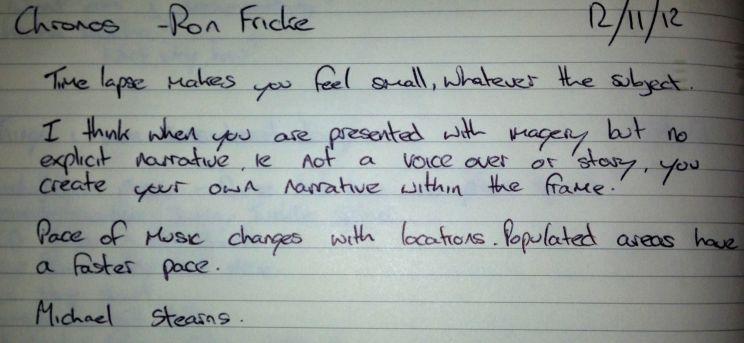 Chronos - Ron Fricke 12/11/12
Time lapse makes you feel small, whatever the subject.
I think when you are presented with imagery but no
explicit narrative, ie not a voice over or story, you
create your own narrative within the frame.
Pace of Music changes with locations. Populated areas have
a faster pace.
Michael Stearns.